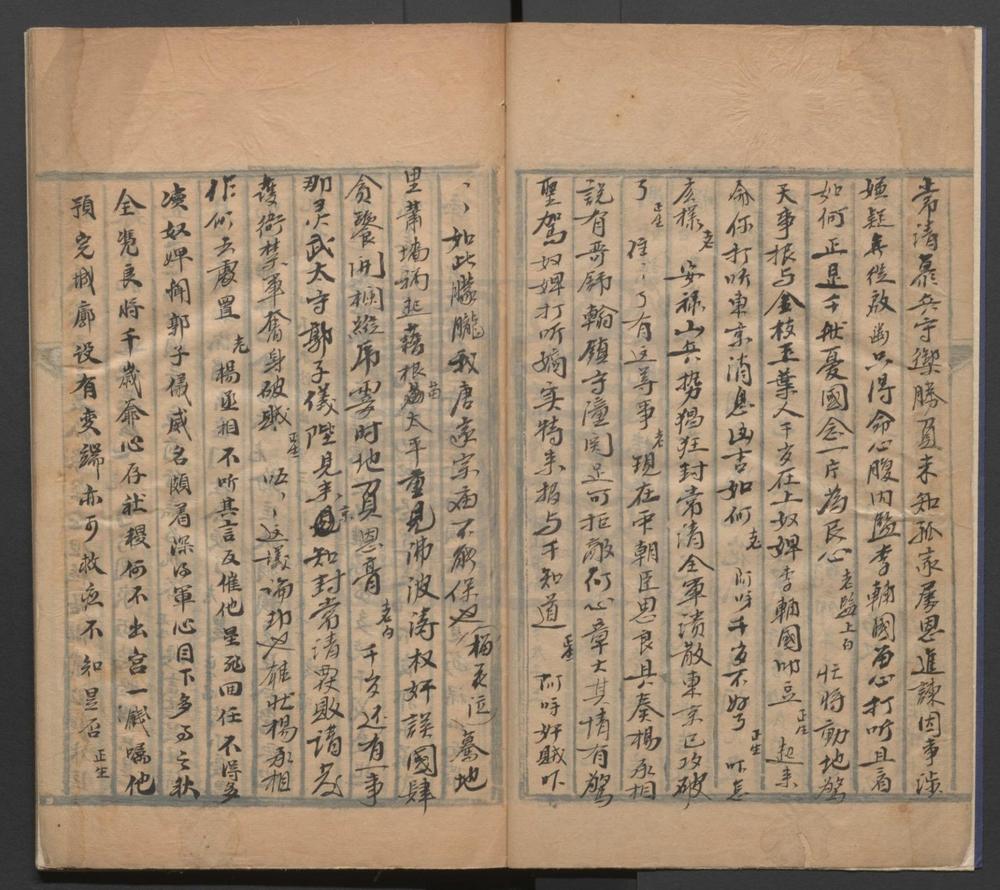 常清募兵守禦勝負未知孤家屢思進諫因事涉
嫌疑無從啟齒只得命心腹內監李輔國留心打听且看
如何正是千秋憂國念一片為民心 老監上白 忙將動地驚
天事报与金枝玉葉人千岁在上奴婢李輔國叩豆 正生 起来
命你打听東京消息凶吉如何 老 阿呀千岁不好了 正生 吓怎
底樣 老 安禄山兵势猖狂封常清全軍潰散東京已攻破
了 正生 住〻了有这等事 老 現在平朝臣思良具奏楊丞相
說有哥舒翰鎮守潼関足可拒敵何心章大其情有驚
聖駕奴婢打听嫡实特来报与千知道 正生 阿呀奸賊吓
〻〻如此朦朧我唐家宗庙不能保也 驀地
里萧墙禍起藉根苗太平重見沸波濤权奸誤國肆
貪饕開櫊縱虎霎时地負恩膏 老白 千岁还有一事
那灵武太守郭子儀陛見来京知封常清兵敗請发
護衛禁軍奮身破賊 正生 唔〻这議论却也雄壮楊丞相
作何去處置 老 楊丞相不听其言反催他星死回任不得多
凟奴婢聞郭子儀威名頗著深得軍心目下多事之秋
全凭良将千歲爺心存社稷何不出宫一餞嘱他
預完城廓设有变端亦可救应不知是否 正生